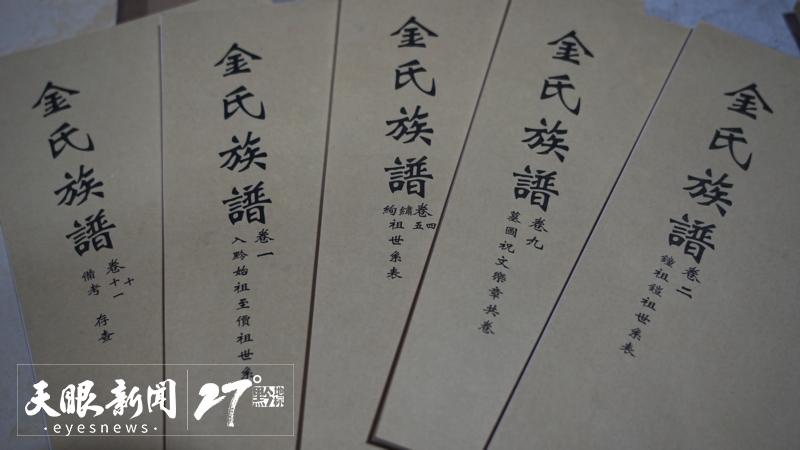 金氏族譜
卷十
十一
備考 存查
金氏族譜
卷一
入黔始祖至價祖世系
金氏族譜
卷四
五
繡祖世系表
絢
金氏族譜
卷九
墓圖祝文樂章共卷
金氏族譜
卷二
鐘祖鎧祖世系表
天眼新闻
·eyesnews·
27°
黔地标